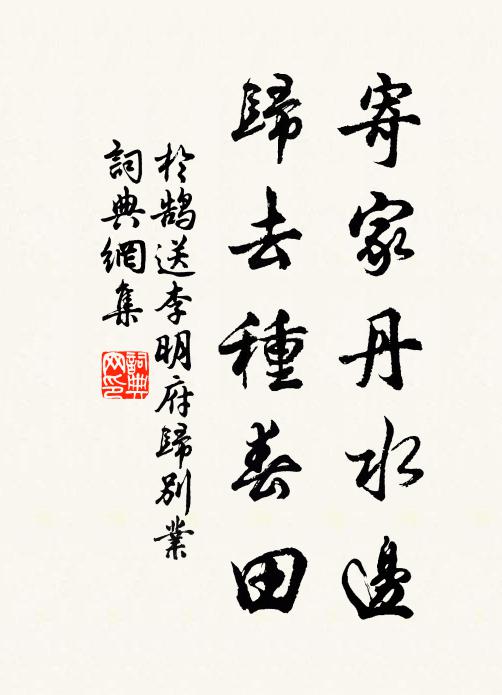 寄家丹水邊
歸去種春田
於鵠送李明府歸別業
詞典網集
詞典
网印